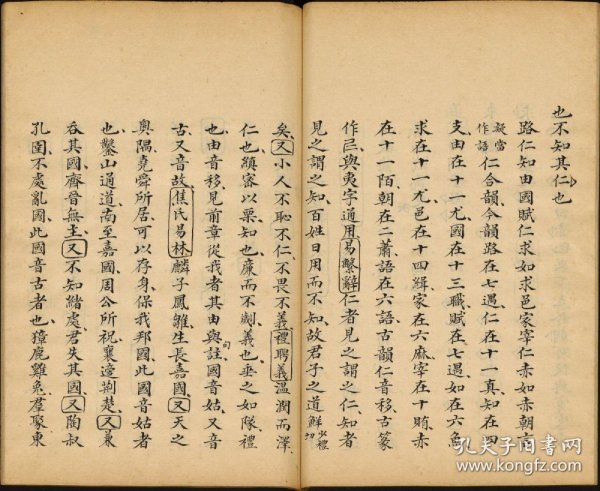 也不知其仁也
路仁知由國賦仁求如求邑家宰仁赤如赤朝言
疑當作語仁合韻今韻路在七遇仁在十一真知在四
支由在十一尤國在十三職賦在七遇如在六魚
求在十一尤邑在十四緝家在六麻宰在十賄赤
在十一陌朝在二蕭語在六語古韻仁音移古篆
作𡰥與夷字通用易繫辭仁者見之謂之仁知者
見之謂之知百姓日用而不知故君子之道鮮少禮切
矣又小人不恥不仁不畏不義禮聘義溫潤而澤
仁也縝密以栗知也廉而不劌義也垂之如隊禮
也由音移見前章從我者其由與註國音姑又音
句
古又音故焦氏易林麟子鳳雛生長嘉國又天之
奧隅堯舜所居可以存身保我邦國此國音姑者
也鑿山通道南至嘉國周公所祝襄適荆楚又
吞其國齊晉無主又不知緒處君失其國又陶叔
孔圉不處亂國此國音古者也獐鹿雉兔羣聚東
孔夫子旧书网
www.kongfz.com
孔夫子旧书网
www.kongfz.com